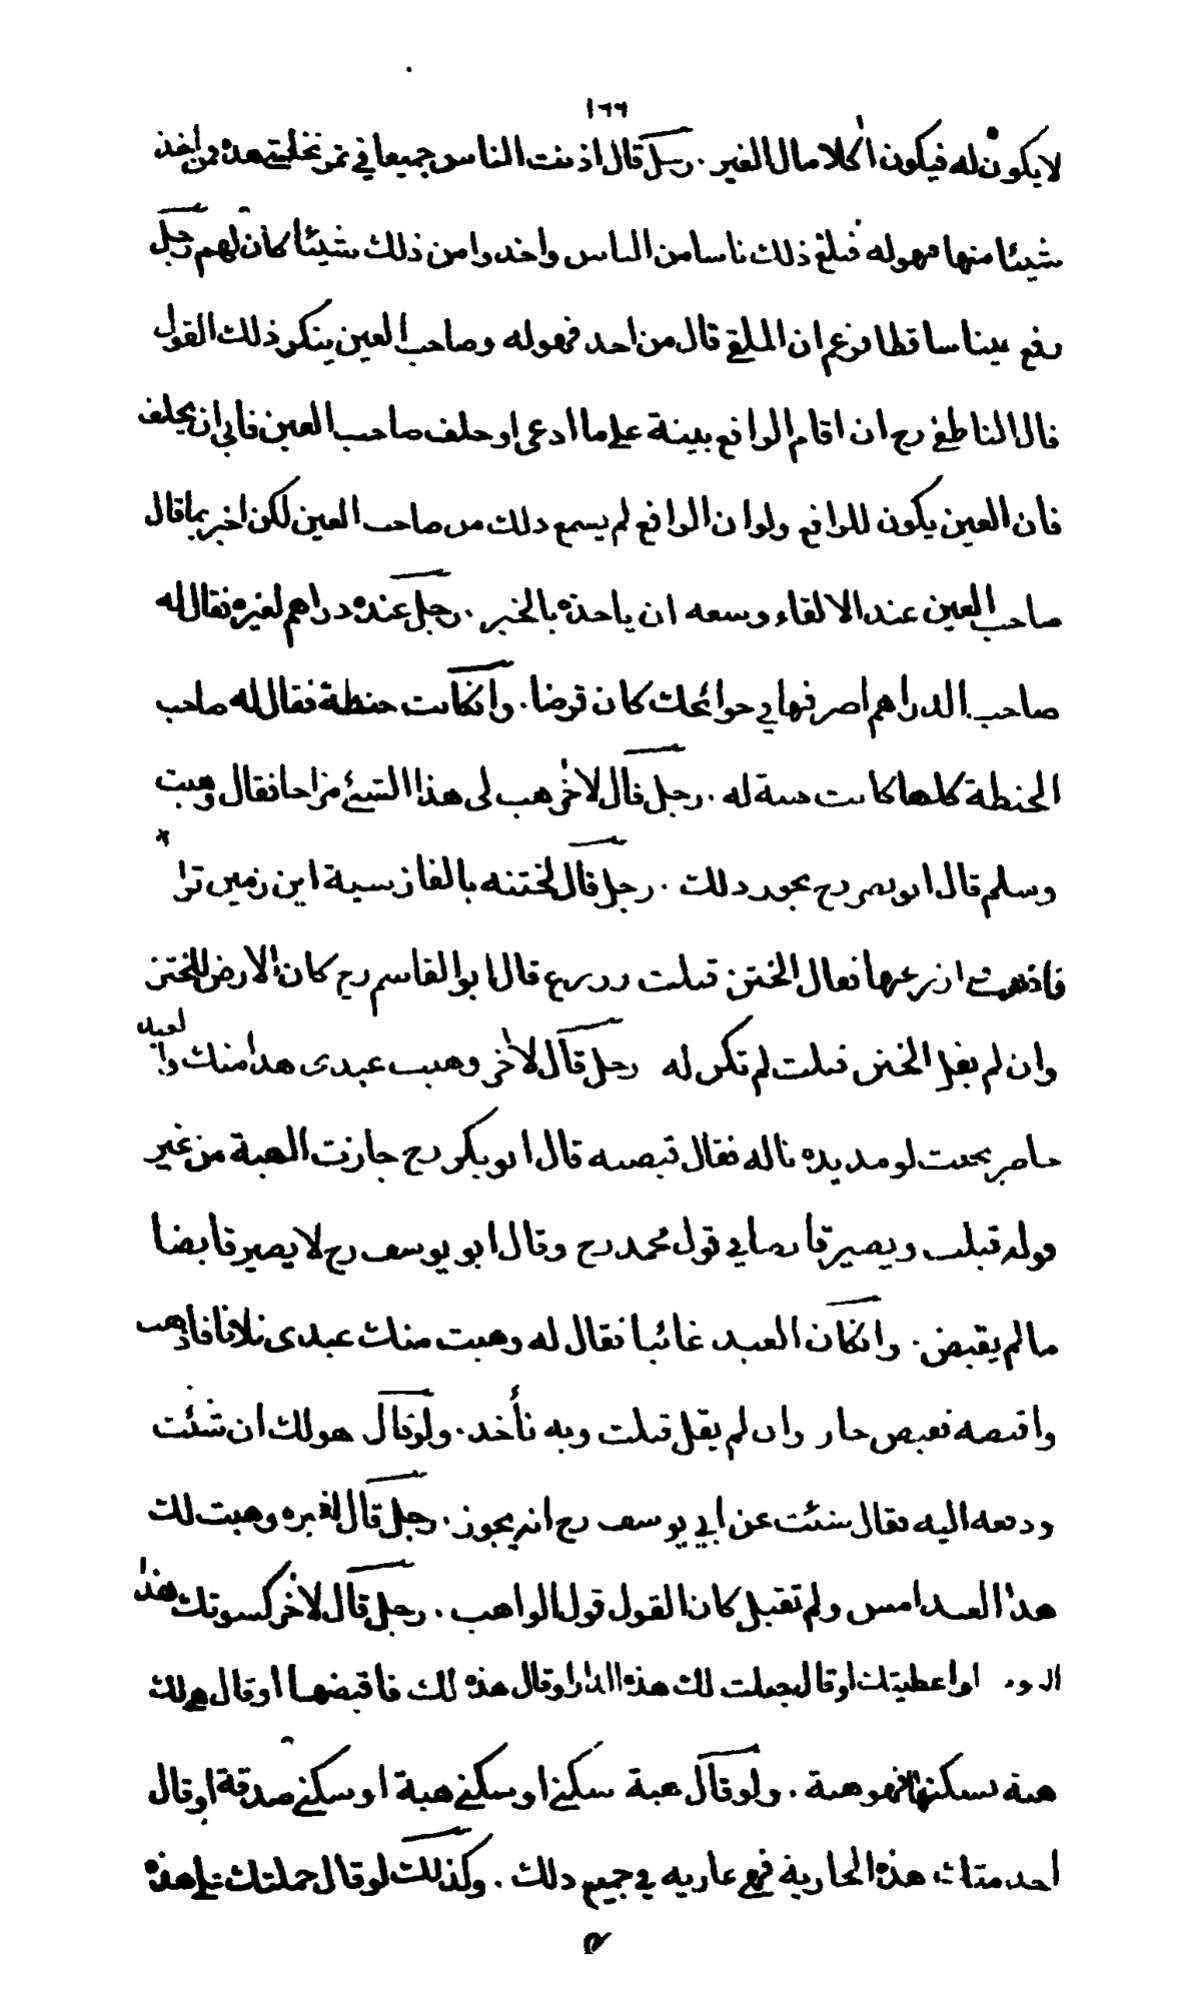 ١٦٦
لا يكون له فيكون اكلا مال الغير . رجل قال اذنت الناس جميعا في ثمر نخلتي هذه من اخذ
شيئا منها فهو له فبلغ ذلك ناسا من الناس واخذوا من ذلك شيئا كان لهم رجل
رفع عينا ساقطا فزعم ان الملقي قال من احد فهو له وصاحب العين ينكر ذلك القول
قال الناطفي رح ان اقام الرافع بينة على ما ادعى او حلف صاحب العين فابى ان يحلف
فان العين يكون للرافع ولو ان الرافع لم يسمع ذلك من صاحب العين لكن اخبر بما قال
صاحب العين عند الالقاء وسعه ان ياخذه بالخبر . رجل عنده دراهم لغيره فقال له
صاحب الدراهم اصرفها في حوائجك كان قرضا . وانكانت حنطة فقال له صاحب
الحنطة كلها كانت هبة له . رجل قال لاخر هب لى هذا الشئ مزاحا فقال وهبت
وسلم قال ابو نصر رح يجوز ذلك . رجل قال لختنه بالفارسية اين زمين ترا
فاذهب ازرعها فقال الختن قبلت قال ابو القاسم رح كان الارض للختن
وان لم يقل الختن قبلت لم تكن له رجل قال لاخر وهبت عبدى هذا منك والعبد
حاضر بحيث لو مد يده ناله فقال قبضته قال ابو بكر رح جازت الهبة من غير
قوله قبلت ويصير قابضا في قول محمد رح وقال ابو يوسف رح لا يصير قابضا
ما لم يقبض . وانكان العبد غائبا فقال له وهبت منك عبدى فلانا فاذهب
واقبضه فقبض جاز وان لم يقل قبلت وبه نأخذ . ولو قال هو لك ان شئت
ودفعه اليه فقال شئت عن ابي يوسف رح انه يجوز . رجل قال لغيره وهبت لك
هذا العبد امس ولم تقبل كان القول قول الواهب . رجل قال لاخر كسوتك هذا
او اعطيتك او قال جعلت لك هذه الدار او قال هذه لك فاقبضها او قال هي لك
هبة تسكنها فهو هبة . ولو قال هبة سكنى او سكنى هبة او سكنى صدقة او قال
اخدمتك هذه الجارية فهي عارية في جميع ذلك . وكذلك لو قال حملتك على هذه